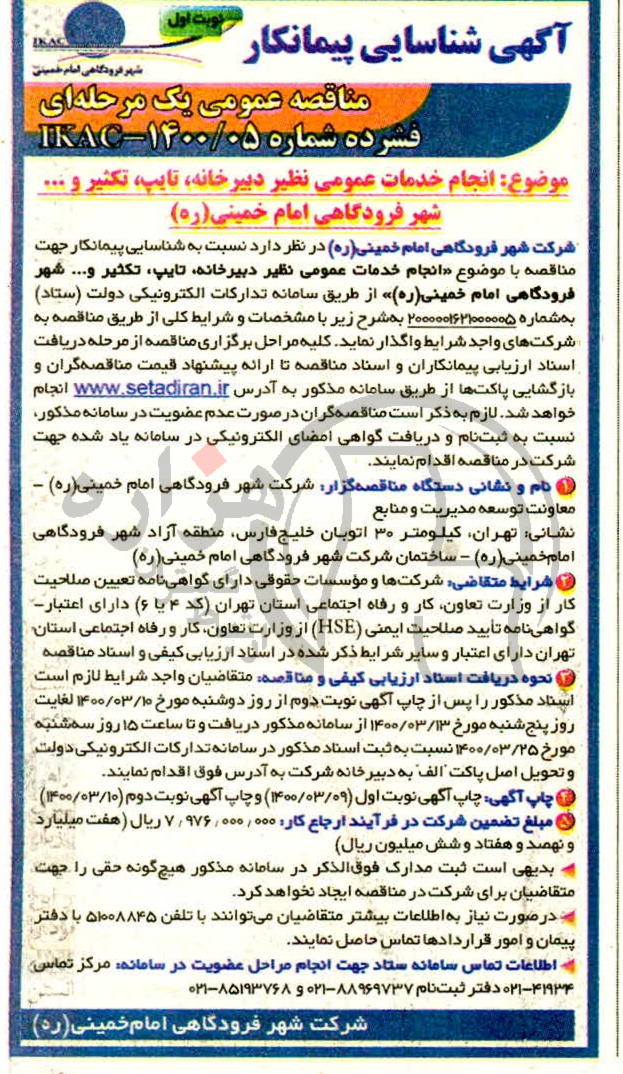 نوبت اول
آگهی شناسایی پیمانکار
IKAC
شهر فرودگاهی امام خمینی
مناقصه عمومی یک مرحله‌ای
فشرده شماره IKAC-۱۴۰۰/۰۵
موضوع: انجام خدمات عمومی نظیر دبیرخانه، تایپ، تکثیر و ...
شهر فرودگاهی امام خمینی(ره)
شرکت شهر فرودگاهی امام‌خمینی(ره) در نظر دارد نسبت به شناسایی پیمانکار جهت
مناقصه با موضوع «انجام خدمات عمومی نظیر دبیرخانه، تایپ، تکثیر و... شهر
فرودگاهی امام خمینی(ره)» از طریق سامانه تدارکات الکترونیکی دولت (ستاد)
به‌شماره ۲۰۰۰۰۰۱۶۲۱۰۰۰۰۰۵ به‌شرح زیر با مشخصات و شرایط کلی از طریق مناقصه به
شرکت‌های واجد شرایط واگذار نماید. کلیه مراحل برگزاری مناقصه از مرحله دریافت
اسناد ارزیابی پیمانکاران و اسناد مناقصه تا ارائه پیشنهاد قیمت مناقصه‌گران و
بازگشایی پاکت‌ها از طریق سامانه مذکور به آدرس www.setadiran.ir انجام
خواهد شد. لازم به ذکر است مناقصه‌گران در صورت عدم عضویت در سامانه مذکور،
نسبت به ثبت‌نام و دریافت گواهی امضای الکترونیکی در سامانه یاد شده جهت
شرکت در مناقصه اقدام نمایند.
۱ نام و نشانی دستگاه مناقصه‌گزار: شرکت شهر فرودگاهی امام خمینی(ره) –
معاونت توسعه مدیریت و منابع
نشانی: تهران، کیلومتر ۳۰ اتوبان خلیج‌فارس، منطقه آزاد شهر فرودگاهی
امام‌خمینی(ره) – ساختمان شرکت شهر فرودگاهی امام خمینی(ره)
۲ شرایط متقاضی: شرکت‌ها و مؤسسات حقوقی دارای گواهی‌نامه تعیین صلاحیت
کار از وزارت تعاون، کار و رفاه اجتماعی استان تهران (کد ۴ یا ۶) دارای اعتبار–
گواهی‌نامه تأیید صلاحیت ایمنی (HSE) از وزارت تعاون، کار و رفاه اجتماعی استان
تهران دارای اعتبار و سایر شرایط ذکر شده در اسناد ارزیابی کیفی و اسناد مناقصه
۳ نحوه دریافت اسناد ارزیابی کیفی و مناقصه: متقاضیان واجد شرایط لازم است
اسناد مذکور را پس از چاپ آگهی نوبت دوم از روز دوشنبه مورخ ۱۴۰۰/۰۳/۱۰ لغایت
روز پنج‌شنبه مورخ ۱۴۰۰/۰۳/۱۳ از سامانه مذکور دریافت و تا ساعت ۱۵ روز سه‌شنبه
مورخ ۱۴۰۰/۰۳/۲۵ نسبت به ثبت اسناد مذکور در سامانه تدارکات الکترونیکی دولت
و تحویل اصل پاکت "الف" به دبیرخانه شرکت به آدرس فوق اقدام نمایند.
۴ چاپ آگهی: چاپ آگهی نوبت اول (۱۴۰۰/۰۳/۰۹) و چاپ آگهی نوبت دوم (۱۴۰۰/۰۳/۱۰)
۵ مبلغ تضمین شرکت در فرآیند ارجاع کار: ۷٫۹۷۶٫۰۰۰٫۰۰۰ ریال (هفت میلیارد
و نهصد و هفتاد و شش میلیون ریال)
بدیهی است ثبت مدارک فوق‌الذکر در سامانه مذکور هیچ‌گونه حقی را جهت
متقاضیان برای شرکت در مناقصه ایجاد نخواهد کرد.
درصورت نیاز به‌اطلاعات بیشتر متقاضیان می‌توانند با تلفن ۵۱۰۰۸۸۴۵ با دفتر
پیمان و امور قراردادها تماس حاصل نمایند.
اطلاعات تماس سامانه ستاد جهت انجام مراحل عضویت در سامانه: مرکز تماس
۰۲۱-۴۱۹۳۴ دفتر ثبت‌نام ۰۲۱-۸۸۹۶۹۷۳۷ و ۰۲۱-۸۵۱۹۳۷۶۸
شرکت شهر فرودگاهی امام‌خمینی(ره)
هزاره